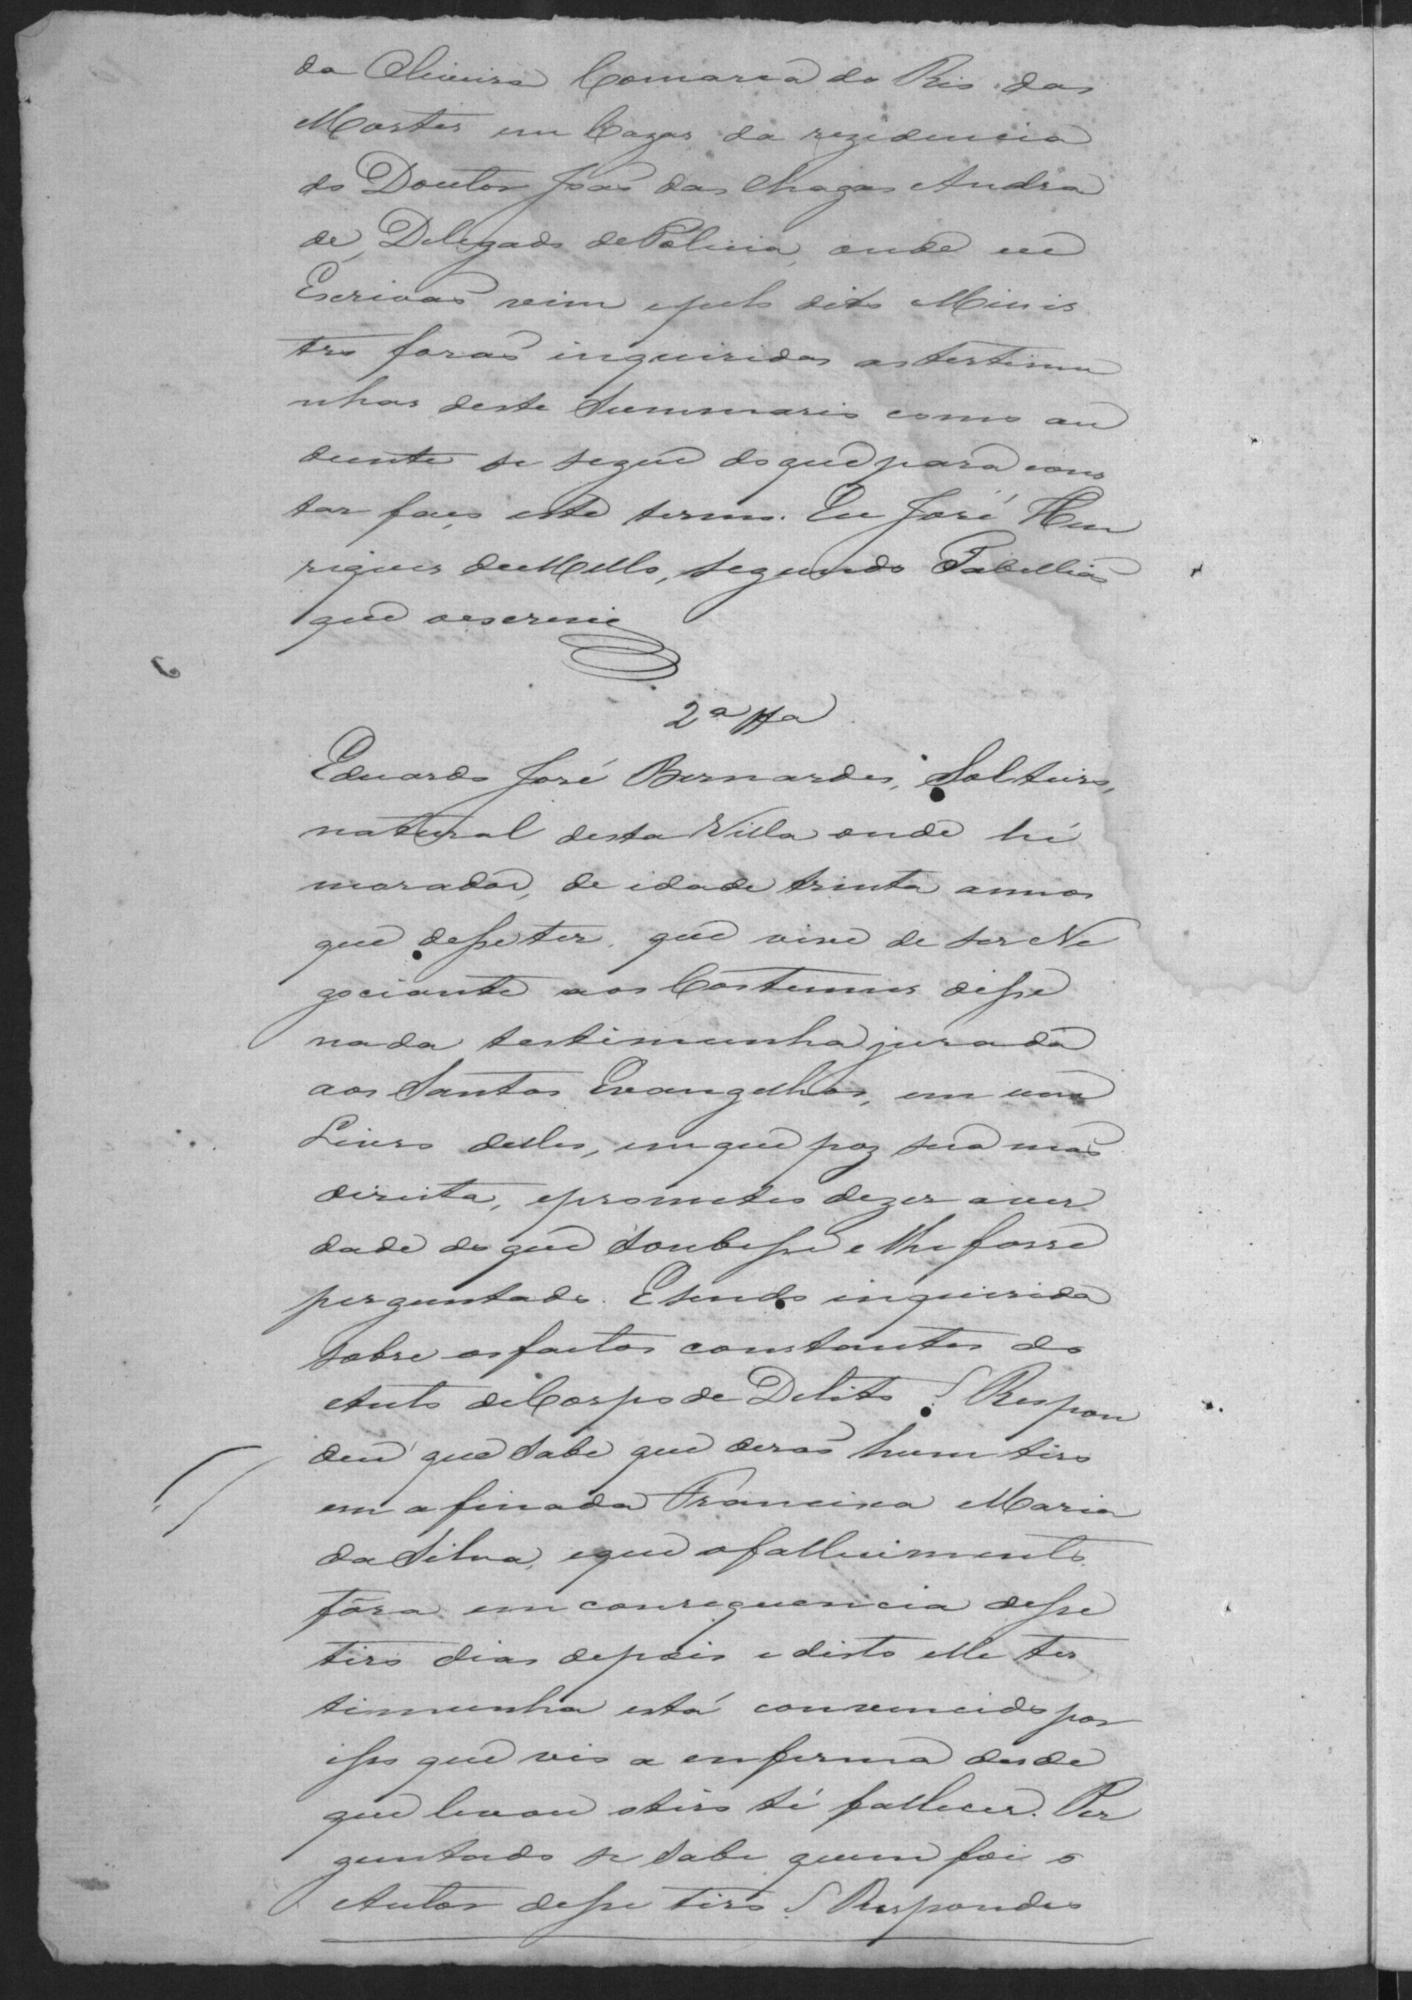 da Oliveira Comarca do Rio das
Mortes em Cazas da rezidencia
do Doutor João das Chagas Andra
de, Delegado de Policia, onde eu
Escrivaõ vim epelo dito Minis
tro foraõ inquiridas astestimu
nhas deste Summario como au
deante se segue doque para cons
tar faço este termo. Eu José Hen
riques deMello, segundo Tabelliaõ
que oescrevi
2ª Tta
Eduardo José Bernardes, Solteiro,
natural desta Villa onde hé
morador, de idade trinta annos
que disse ter, que vive de ser Ne
gociante aos Costumes disse
nada testimunha jurada
aos Santos Evangelhos, em um
Livro delles, emque poz sua maõ
direita, eprometeo dizer aver
dade do que Soubesse e lhe fosse
perguntado. Esendo inquirida
Sobre osfactos constantes do
Auto deCorpo de Delito? Respon
deu que Sabe que deraõ hum tiro
em afinada Francisca Maria
daSilva, eque ofallecimento
fôra em consequencia desse
tiro dias depois e disto elle tes
timunha está convencido por
isso que vio a enferma desde
que levou otiro té fallecer. Per
guntado se Sabe quem foi o
Autor desse tiro? Respondeo